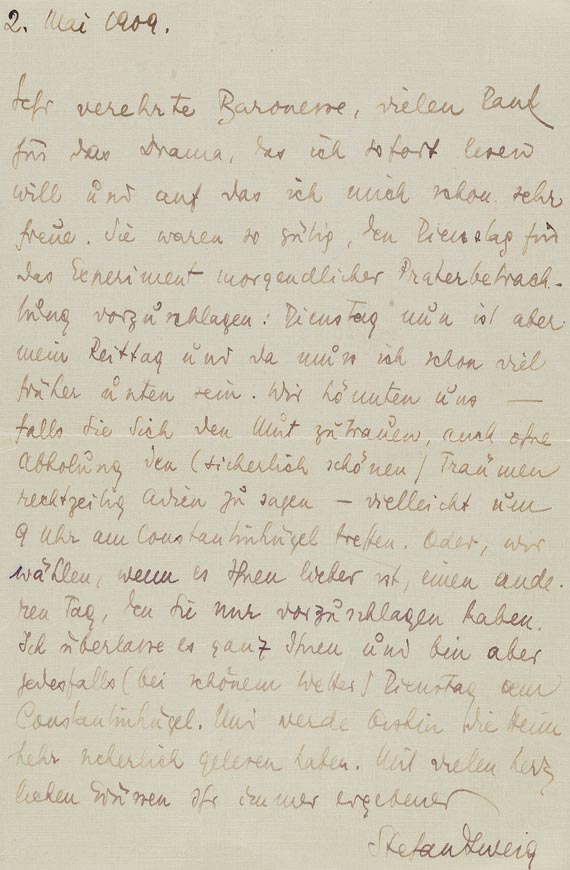 2. Mai 1909.
Sehr verehrte Baronesse, vielen Dank
für das Drama, das ich sofort lesen
will und auf das ich mich schon sehr
freue. Sie waren so gütig, den Dienstag für
das Experiment morgendlicher Praterbetrach-
tung vorzuschlagen: Dienstag nun ist aber
mein Reittag und da muss ich schon viel
früher unten sein. Wir könnten uns —
falls Sie Sich den Mut zutrauen, auch ohne
Abholung den (sicherlich schönen) Träumen
rechtzeitig Adieu zu sagen — vielleicht um
9 Uhr am Constantinhügel treffen. Oder, wir
wählen, wenn es Ihnen lieber ist, einen ande-
ren Tag, den Sie nur vorzuschlagen haben.
Ich überlasse es ganz Ihnen und bin aber
jedesfalls (bei schönem Wetter) Dienstag am
Constantinhügel. Und werde die Heim
kehr sicherlich gelesen haben. Mit vielen herz
lichen Grüssen Ihr immer ergebener
Stefan Zweig